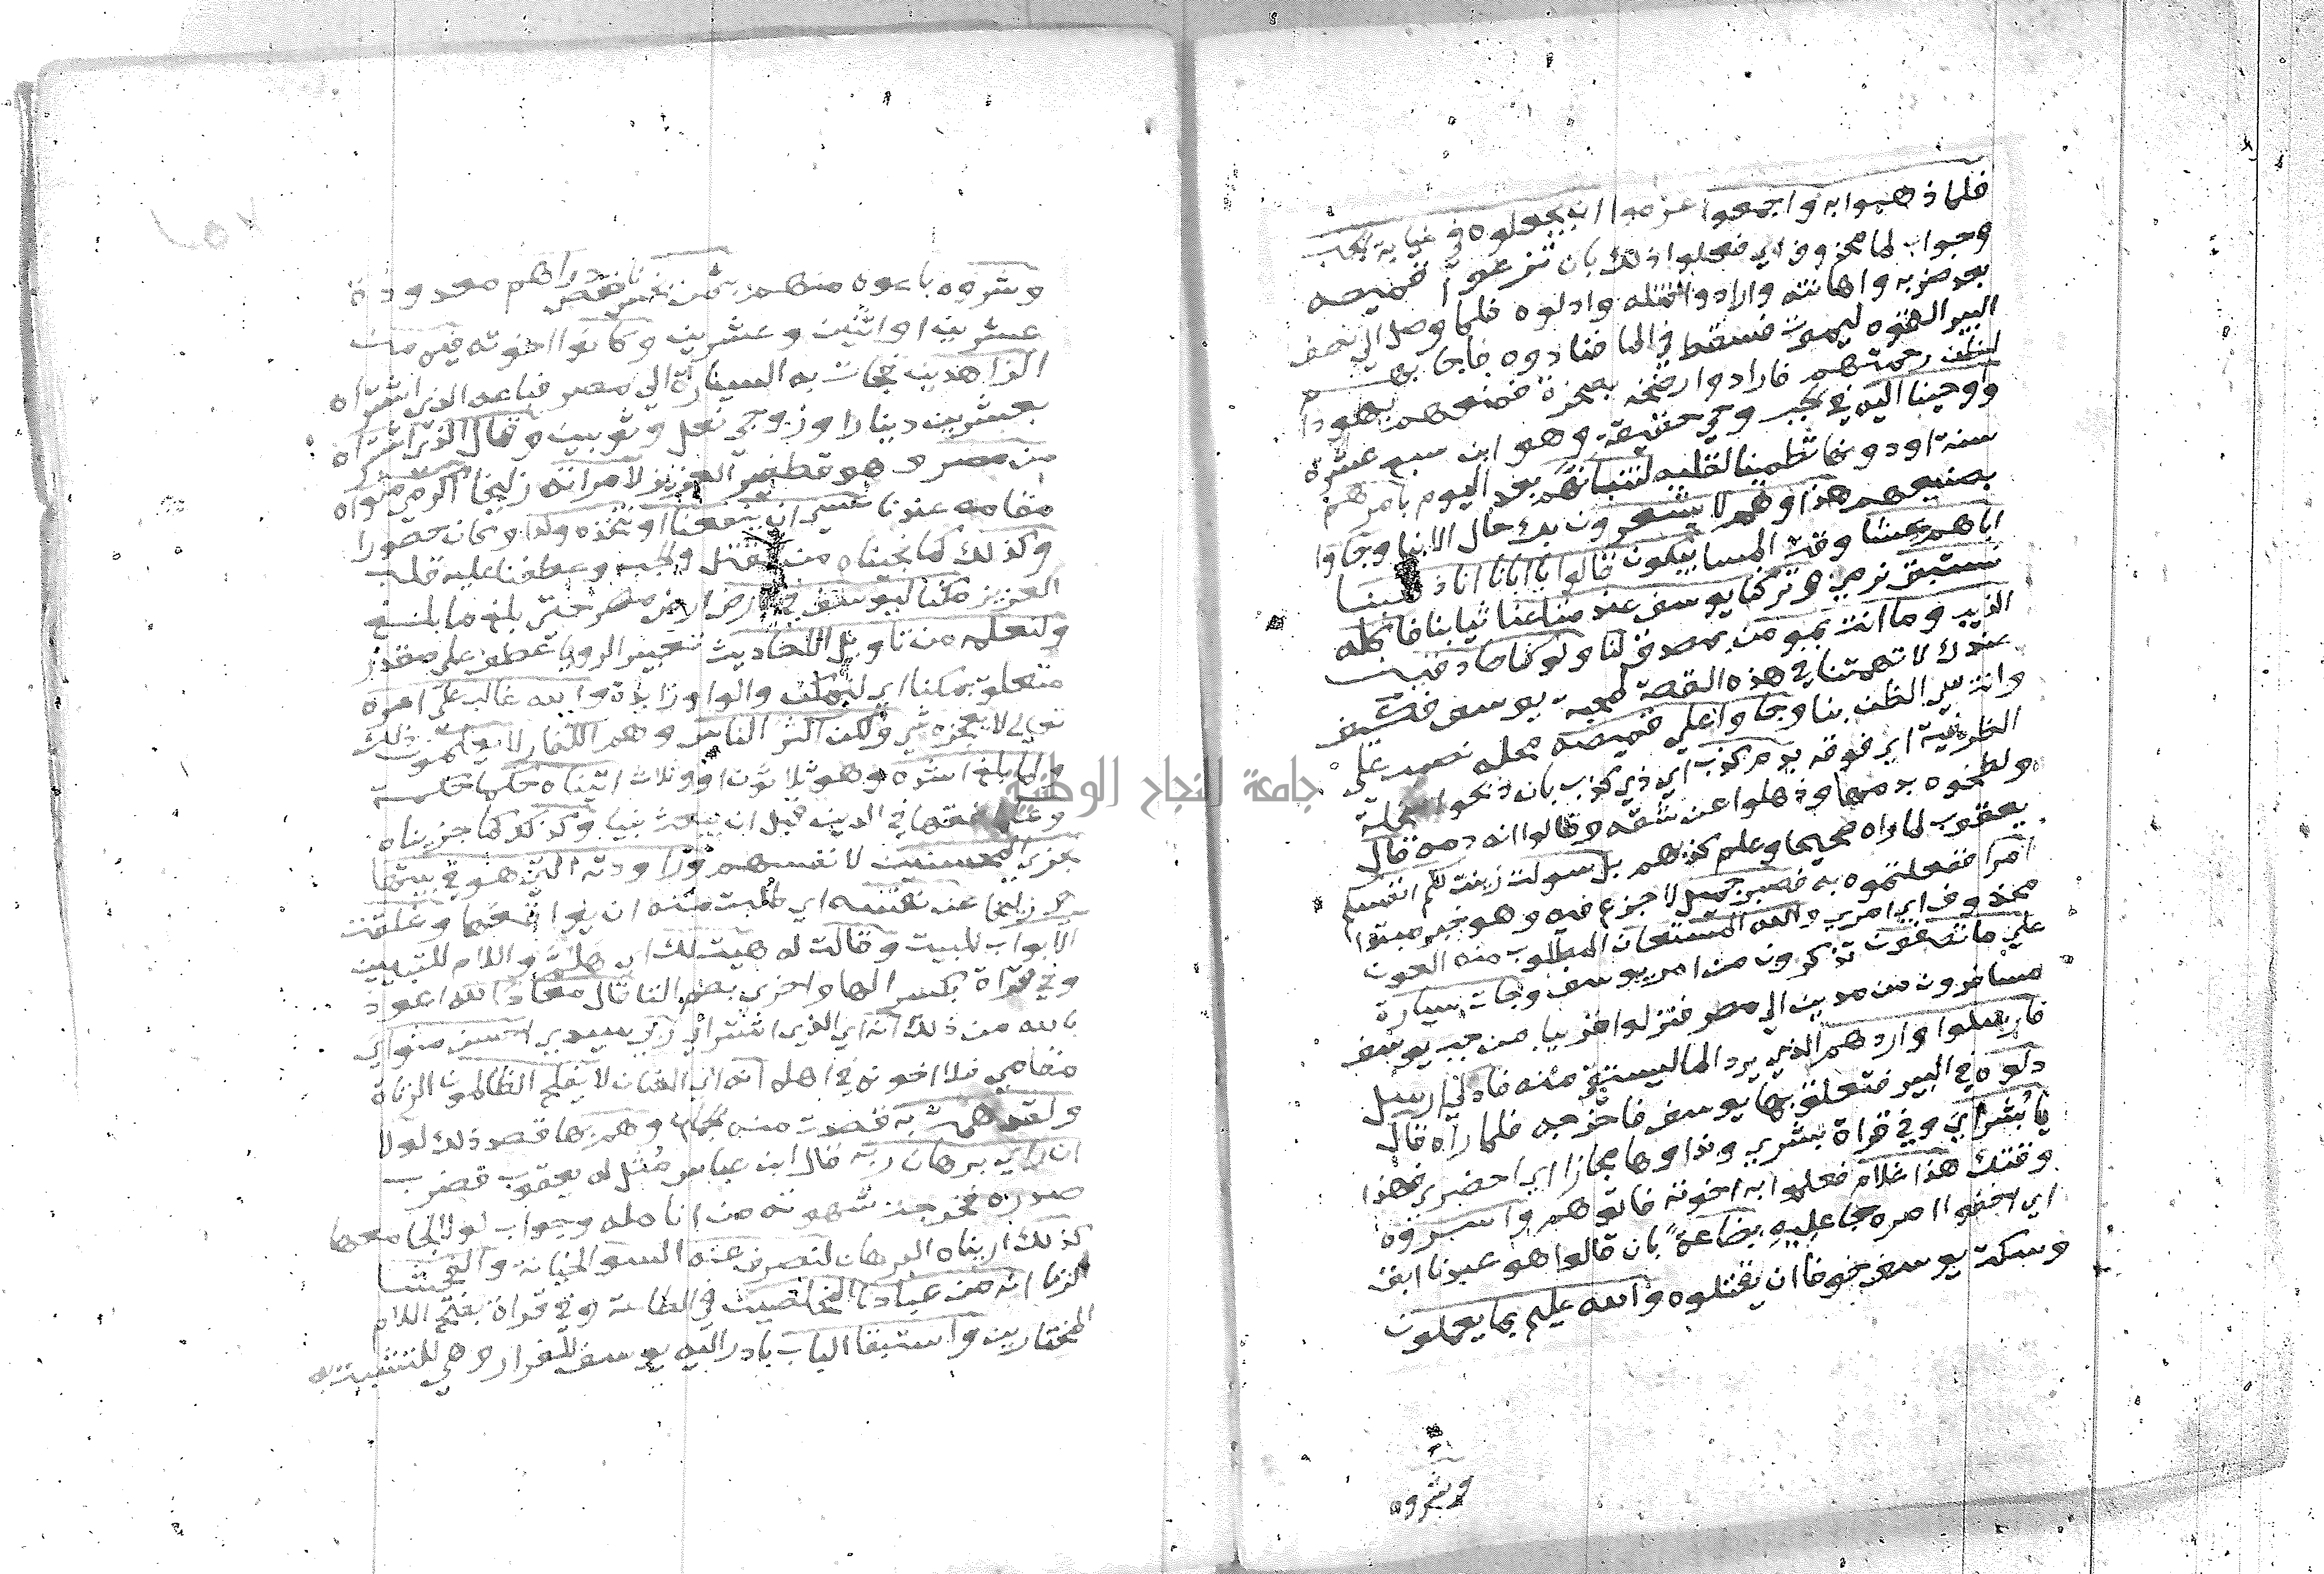 فلما ذهبوا به واجمعوا عزموا ان يجعلوه في غيابة الجب
وجواب لما محذوف اي فعلوا ذلك بان نزعوا قميصه
بعد ضربه واهانته وارادوا قتله وادلوه فلما وصل الى نصف
البير القوه ليموت فسقط في الما فنادوه فاجابهم
لظن رحمتهم فارادوا رضخه بصخرة فمنعهم يهودا
واوحينا اليه في الجب وحي حقيقة وهو ابن سبع عشرة
سنة او دونها تطمينا لقلبه لتنبانهم بعد اليوم بامرهم
بصنيعهم هذا وهم لا يشعرون بك حال الانبا وجاوا
اباهم عشا وقت المسا يبكون قالوا يا ابانا انا ذهبنا
نستبق نرمي وتركنا يوسف عند متاعنا ثيابنا فاكله
الذيب وما انت بمومن بمصدق لنا ولو كنا صادقين
عندك لاتهمتنا في هذه القصة لمحبة يوسف فكيف
وانت تسي الظن بنا وجاوا علي قميصه محله نصب علي
الظرفية اي فوقه بدم كذب اي ذي كذب بان ذبحوا سخلة
ولطخوه بدمها وذهلوا عن شقه وقالوا انه دمه قال
يعقوب لما راه صحيحا وعلم كذبهم بل سولت زينت لكم انفسكم
امرا ففعلتموه به فصبر جميل لا جزع فيه وهو خبر مبتدا
محذوف اي امري والله المستعان المطلوب منه العون
علي ما تصفون تذكرون من امر يوسف وجات سيارة
مسافرون من مدين الي مصر فنزلوا قريبا من جب يوسف
فارسلوا واردهم الذي يرد الما ليستقي منه فادلي ارسل
دلوه في البير فتعلق بها يوسف فاخرجه فلما راه قال
يا بشراي وفي قراة بشري ونداوها مجازا اي احضري فهذا
وقتك هذا غلام فعلموا به اخوته فاتوهم واسروه
اي اخفوا امره جاعليه بضاعةً بان قالوا هو عبدنا ابق
وسكت يوسف خوفا ان يقتلوه والله عليم بما يعملون
وشروه
وشروه باعوه منهم بثمن بخس ناقص دراهم معدودة
عشرين او اثنين وعشرين وكانوا اخوته فيه من
الزاهدين فجات به السيارة الي مصر فباعه الذي اشتراه
بعشرين دينارا وزوجي نعل وثوبين وقال الذي اشتراه
من مصر وهو قطفير العزيز لامراته زليخا اكرمي مثواه
مقامه عندنا عسي ان ينفعنا او نتخذه ولدا وكان حصورا
وكذلك كما نجيناه من القتل والجب وعطفنا عليه قلب
العزيز مكنا ليوسف في الارض ارض مصر حتي بلغ ما بلغ
ولنعلمه من تاويل الاحاديث تعبير الرويا عطف علي مقدر
متعلق بمكنا اي لنملكه والواو زايدة والله غالب علي امره
تعالي لا يعجزه شي ولكن اكثر الناس وهم الكفار لا يعلمون ذلك
ولما بلغ اشده وهو ثلاثون او وثلاث اتيناه حكما حكمة
وعلما فقها في الدين قبل ان يبعث نبيا وكذلك كما جزيناه
نجزي المحسنين لانفسهم وراودته التي هو في بيتها
هي زليخا عن نفسه اي طلبت منه ان يواقعها وغلقت
الابواب للبيت وقالت له هيت لك اي هلم واللام للتبيين
وفي قراة بكسر الها واخري بضم التا قال معاذ الله اعوذ
بالله من ذلك انه اي الذي اشتراني ربي سيدي احسن مثواي
مقامي فلا اخونه في اهله انه اي الشان لا يفلح الظالمون الزناة
ولقد همت به قصدت منه الجماع وهم بها قصد ذلك لولا
ان راي برهان ربه قال ابن عباس مُثل له يعقوب فضرب
صدره فخرجت شهوته من انامله وجواب لولا لجامعها
كذلك اريناه البرهان لنصرف عنه السو الخيانة والفحشا
الزنا انه من عبادنا المخلصين في الطاعة وفي قراة بفتح اللام
المختارين واستبقا الباب بادر اليه يوسف للفرار وهي للتشبث به
جامعة النجاح الوطنية